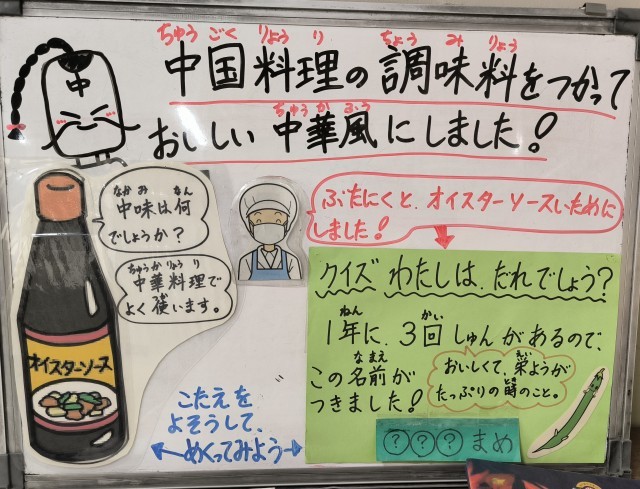 中国料理の調味料をつかって
ちゅうごくりょうり ちょうみりょう
おいしい中華風にしました!
ちゅうかふう
中
中味は何
なかみ なん
でしょうか?
中華料理で
ちゅうかりょうり
よく使います。
つか
オイスターソース
ぶたにくと、オイスターソースいために
しました!
クイズ わたしは、だれでしょう?
1年に、3回 しゅんがあるので、
ねん かい
この名前が
なまえ
つきました!
おいしくて、栄ようが
えい
たっぷりの時のこと。
とき
???まめ
こたえを
よそうして、
めくってみよう